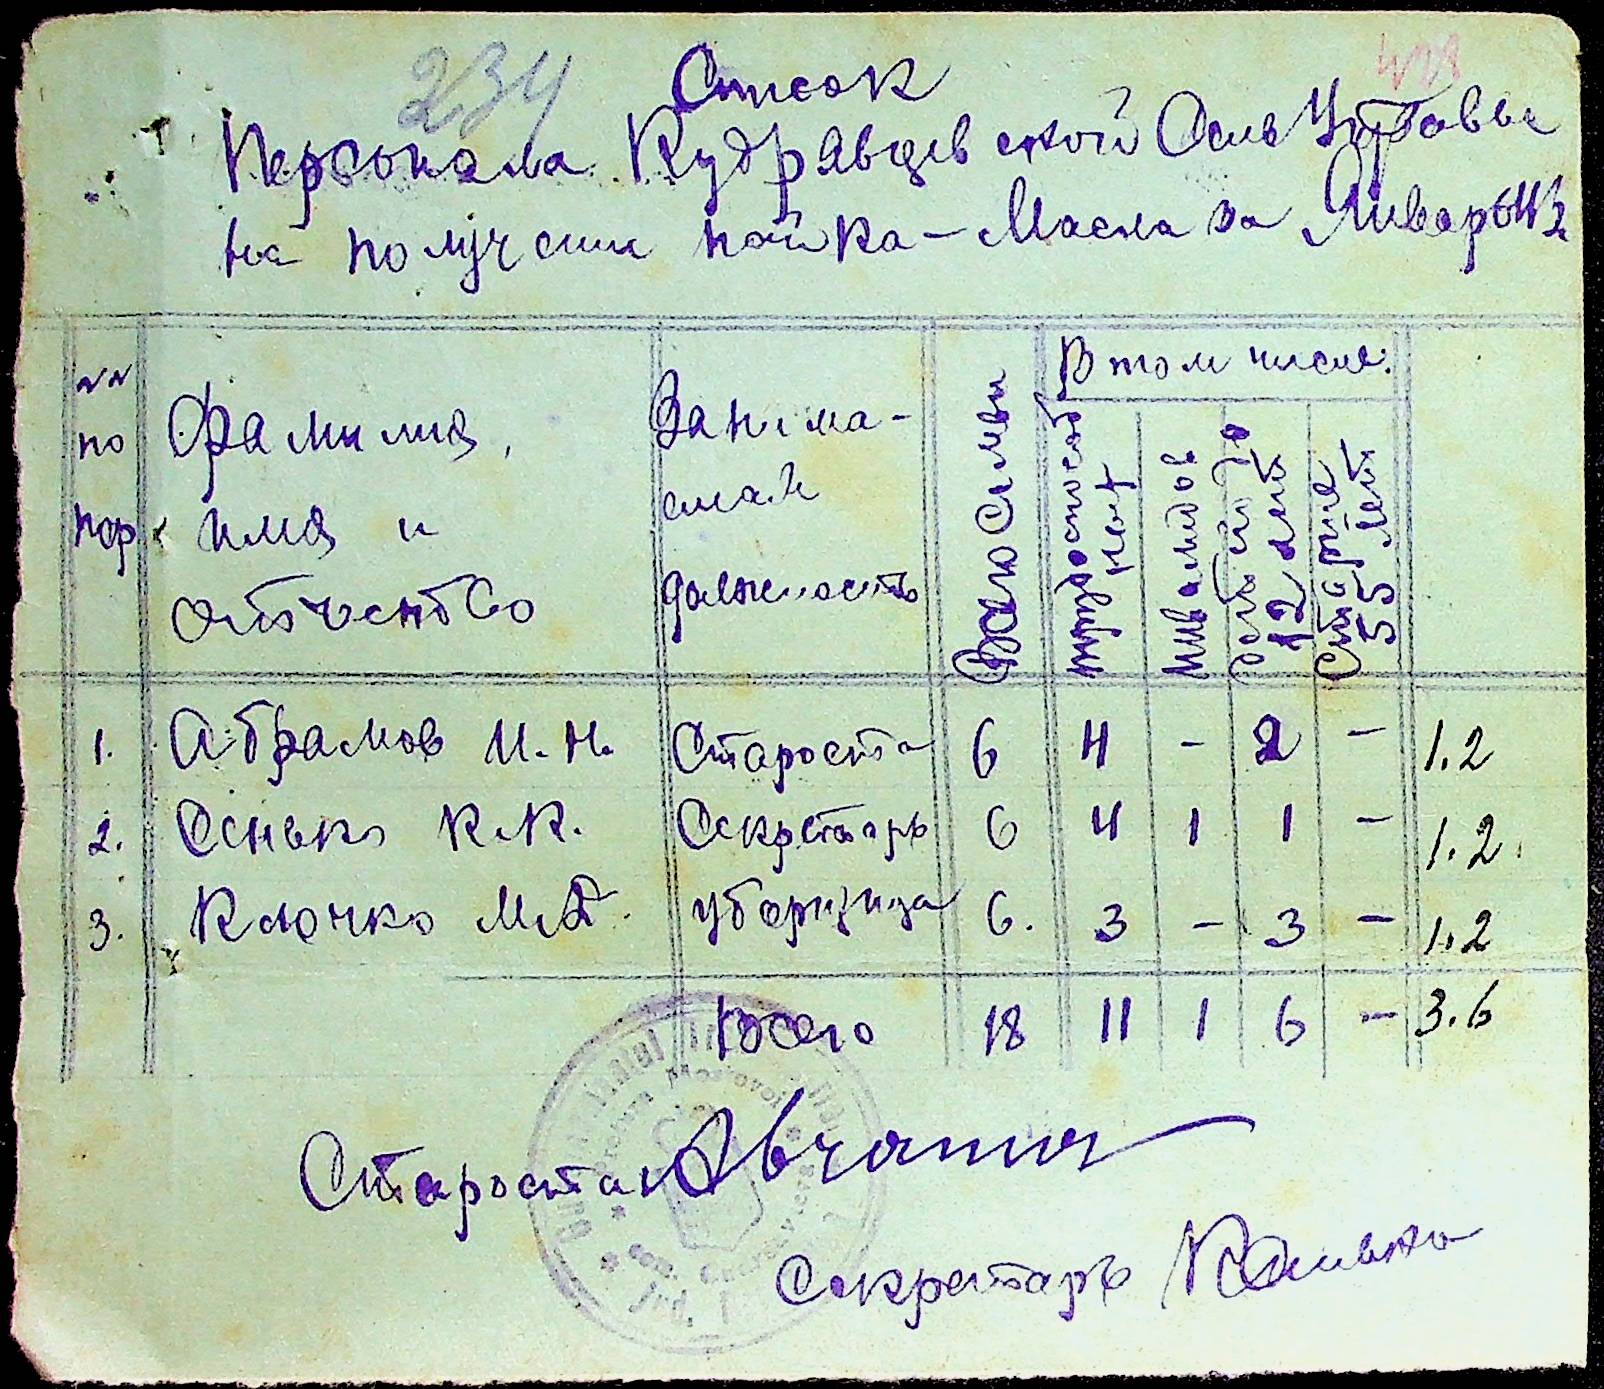 234
Список
Персонала Кудрявцевской Сельуправы
на получении пайка - Масла за Январь 43
№№ по пор
Фамилия, имя и отчество
Занимаемая должность
Всего Семьи
В том числе:
трудоспособных
инвалидов
детей до 12 лет
Старше 55 лет
1. Абрамов И.Н. Староста 6 4 - 2 - 1.2
2. Сенько К.К. Секретарь 6 4 1 1 - 1.2.
3. Клочко М.Д. уборщица 6. 3 - 3 - 1.2
Всего 18 11 1 6 - 3.6
Староста
Секретарь